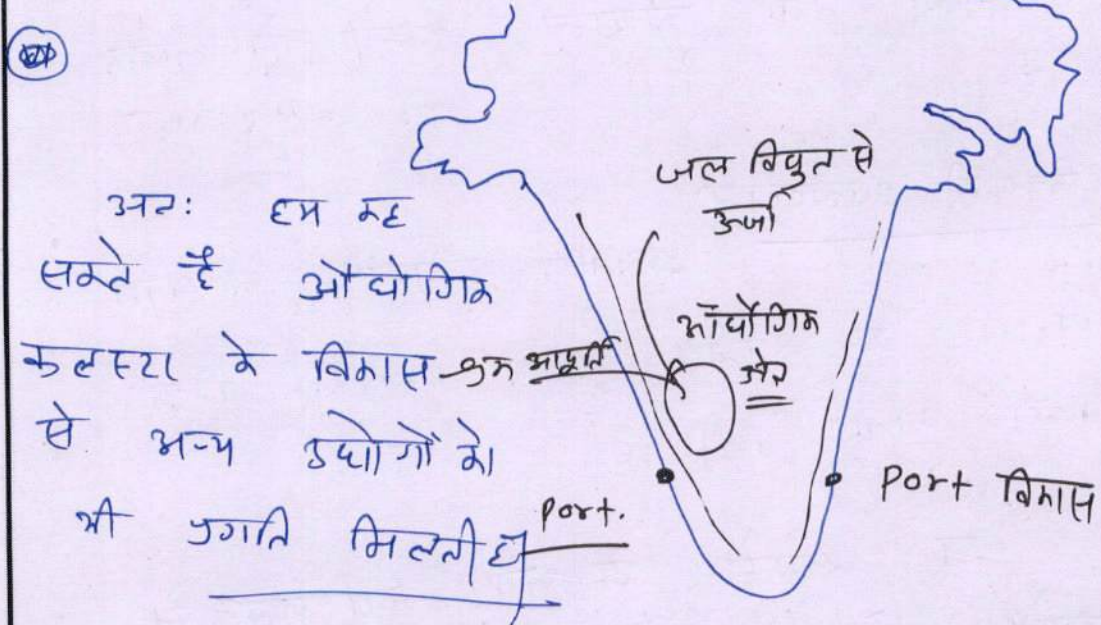 अतः हम कह
सकते है औद्योगिक
कलस्टर के विकास
से अन्य उद्योगों को
भी प्रगति मिलती है
जल विद्युत से
ऊर्जा
औद्योगिक
क्षेत्र
श्रम आपूर्ति
port.
Port विकास